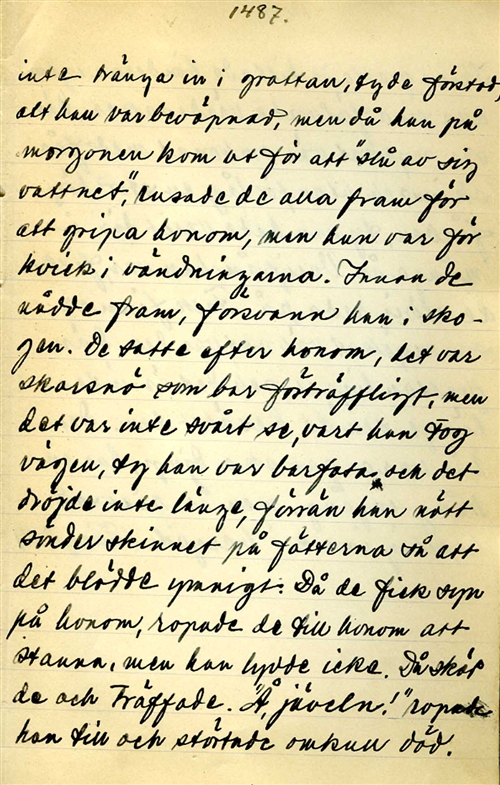 1487.
inte tränga in i grottan, ty de förstod,
att han var beväpnad, men då han på
morgonen kom ut för att "slå av sig
vattnet", rusade de alla fram för
att gripa honom, men han var för
kvick i vändningarna. Innan de
nådde fram, försvann han i sko-
gen. De satte efter honom, det var
skarsnö som bar förträffligt, men
det var inte svårt se, vart han tog
vägen, ty han var barfota och det
dröjde inte länge, förrän han nött
sönder skinnet på fötterna så att
det blödde ymnigt. Då de fick syn
på honom, ropade de till honom att
stanna, men han lydde icke. Då sköt
de och träffade. "Å, jäveln!" ropade
han till och störtade omkull död.